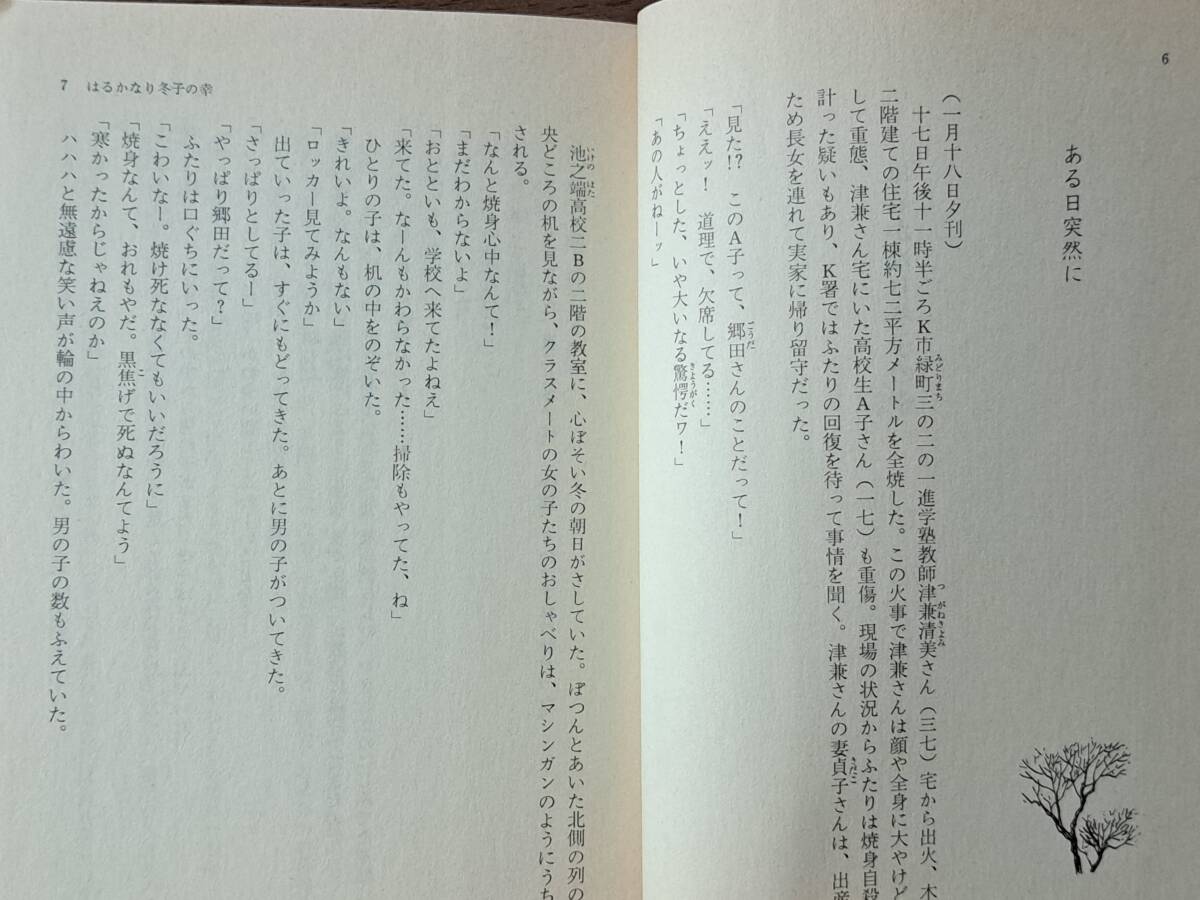 6
ある日突然に
(一月十八日夕刊)
十七日午後十一時半ごろK市緑町三の二の一進学塾教師津兼清美さん(三七)宅から出火、木
二階建ての住宅一棟約七二平方メートルを全焼した。この火事で津兼さんは顔や全身に大やけど
して重態、津兼さん宅にいた高校生A子さん(一七)も重傷。現場の状況からふたりは焼身自殺
計った疑いもあり、K署ではふたりの回復を待って事情を聞く。津兼さんの妻貞子さんは、出産
ため長女を連れて実家に帰り留守だった。
「見た!? このA子って、郷田さんのことだって!」
「ええッ! 道理で、欠席してる……」
「ちょっとした、いや大いなる驚愕だワ!」
「あの人がねーッ」
7 はるかなり冬子の幸
池之端高校二Bの二階の教室に、心ぼそい冬の朝日がさしていた。ぽつんとあいた北側の列の
央どころの机を見ながら、クラスメートの女の子たちのおしゃべりは、マシンガンのようにうち
される。
「なんと焼身心中なんて!」
「まだわからないよ」
「おとといも、学校へ来てたよねえ」
「来てた。なーんもかわらなかった……掃除もやってた、ね」
ひとりの子は、机の中をのぞいた。
「きれいよ。なんもない」
「ロッカー見てみようか」
出ていった子は、すぐにもどってきた。あとに男の子がついてきた。
「さっぱりとしてるー」
「やっぱり郷田だって?」
ふたりは口ぐちにいった。
「こわいなー。焼け死ななくてもいいだろうに」
「焼身なんて、おれもやだ。黒焦げで死ぬなんてよう」
「寒かったからじゃねえのか」
ハハハと無遠慮な笑い声が輪の中からわいた。男の子の数もふえていた。